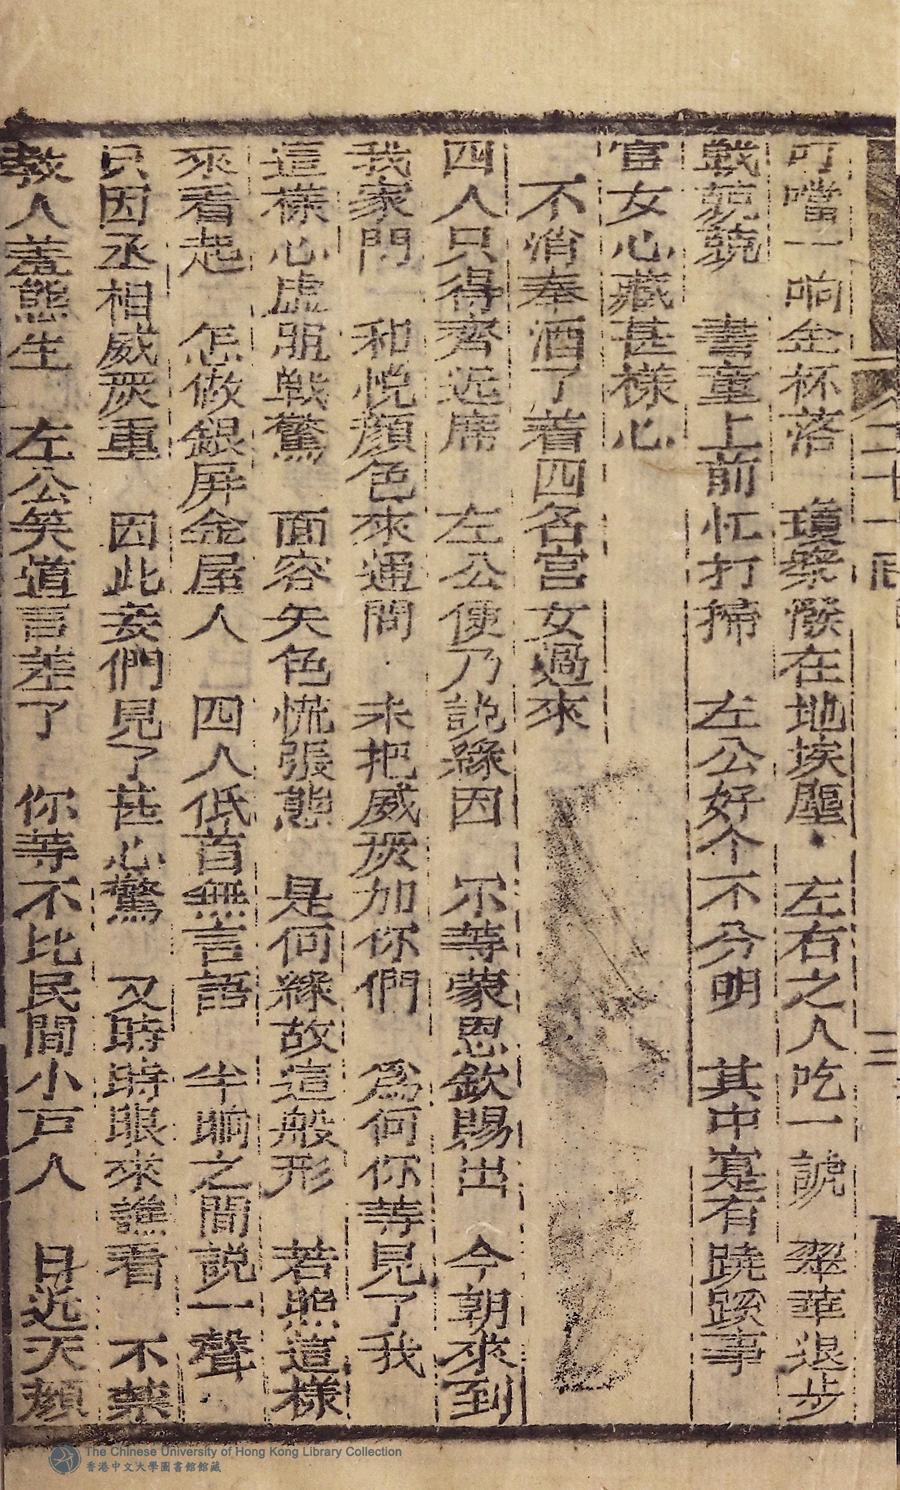 叮噹一响金杯落　瓊漿潑在地埃塵　左右之人吃一諕　翠華退步
戰兢兢　書童上前忙打掃　左公好个不分明　其中寔有蹺蹊事
宮女心藏甚樣心
不消奉酒了着四名宮女過來
四人只得齊近席　左公便乃說緣因　尔等蒙恩欽賜出　今朝來到
我家門　和悅顏色來通問　未把威嚴加你們　爲何你等見了我
這樣心虛胆戰驚　面容失色慌張態　是何緣故這般形　若照這樣
來看起　怎做銀屏金屋人　四人低首無言語　半晌之間說一聲
只因丞相威嚴重　因此妾們見了甚心驚　又時時眼來譙看　不禁
教人羞態生　左公笑道言差了　你等不比民間小戶人　日近天顏
二十一回
三
The Chinese University of Hong Kong Library Collection
香港中文大學圖書館館藏